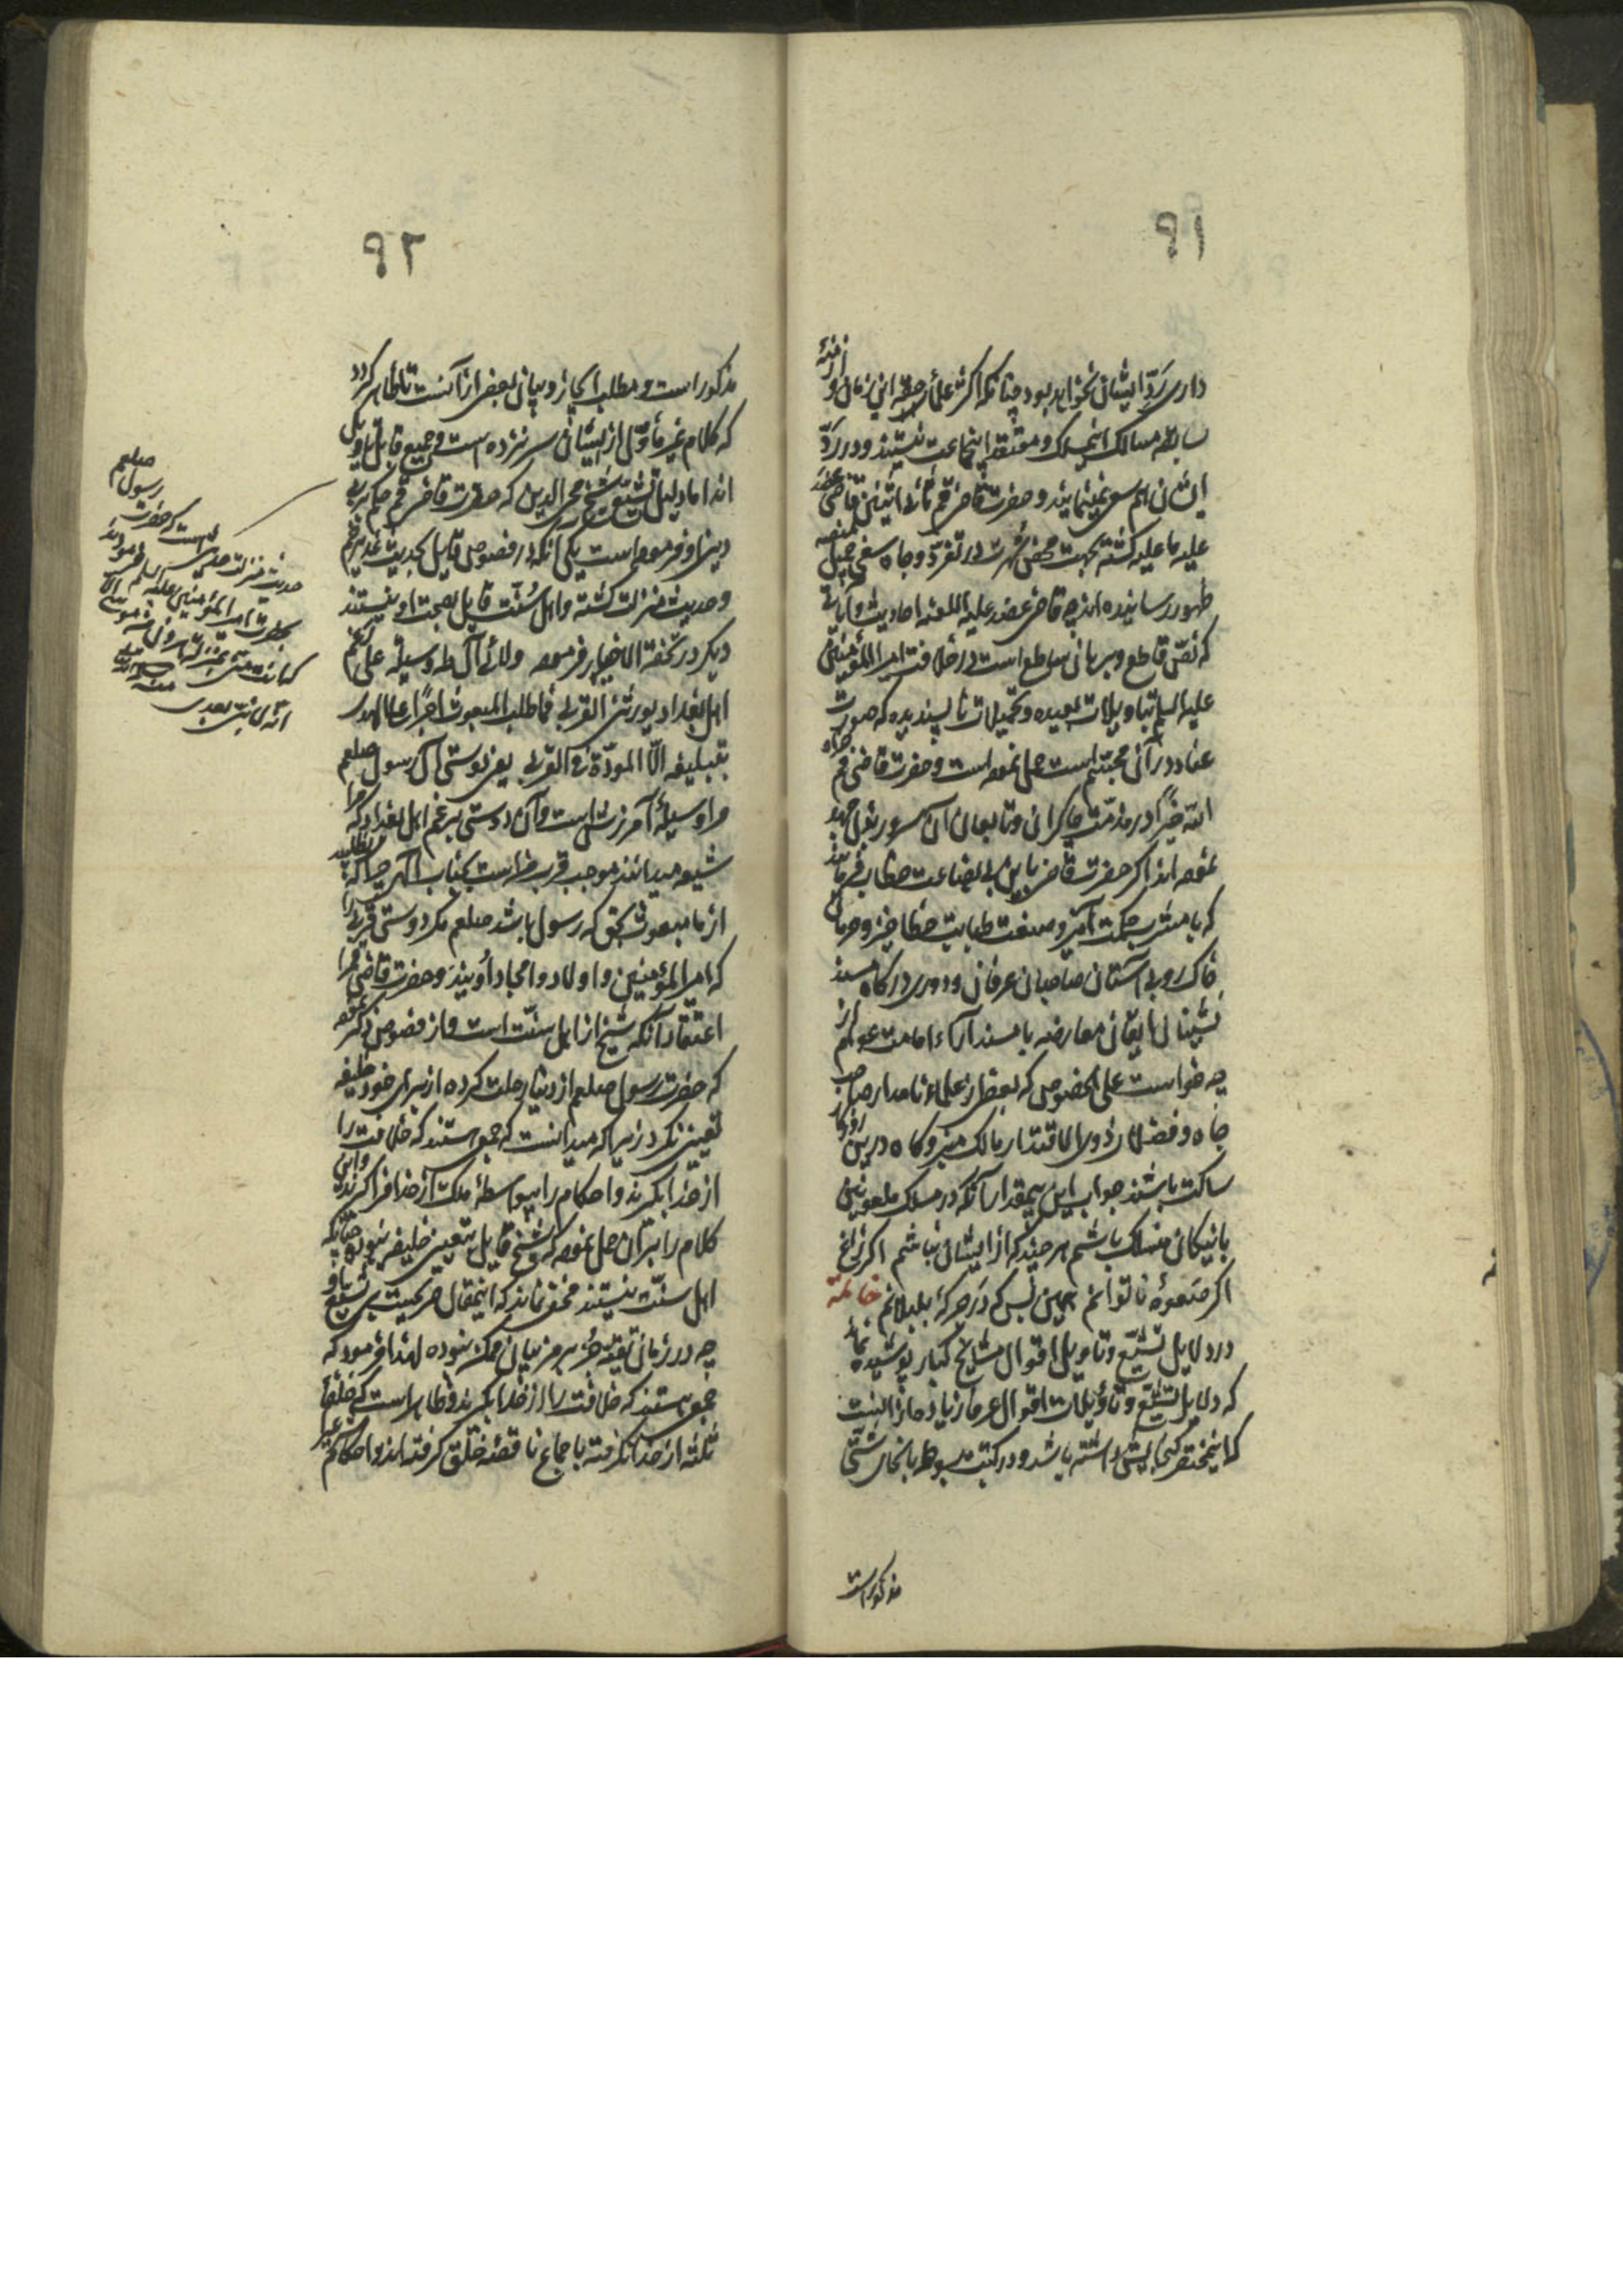 ۹۱
داری ردّ ایشان نخواهد بود چنانکه اکثر علمای حقه این زمان و ازمنهٔ
سابقه سالک این مسلک و معتقد اینجماعت نیستند و در ردّ
ایشان هم سعی نمینمایند و حضرت قاضی قم ثانی اثنین قاضی عضد
علیه ما علیه گشته بجهت محض شهرت در تفرّد و جاه سعی جمیل
ظهور رسانیده اند چه قاضی عضد علیه اللعنه احادیث و آیاتی
که نصّ قاطع و برهان ساطع است در خلافت امیر المؤمنین
علیه السلم بتاویلات بعیده و تحمیلات ناپسندیده که صورت
عناد در آن مجسّم است حمل نموده است و حضرت قاضی قم جزاه
الله خیرًا در مذمّت چاکران و تابعان آن سرور بذل جهد
نموده اند اگر حضرت قاضی باین بی بضاعت خطاب فرمایند
که با مشرب حکمت آمیز و صنعت طبابت خطا خیز و حرمان
خاک روبی آستان صاحبان عرفان و دوری درگاه مسند
نشینان ایقان معارضه با مسند آراء امامت عوام از
چه خواست علی الخصوص که بعضی از علماء نامدار صاحب
جاه و فضلای ذوی الاقتدار مالک منبر و کاه درین روزگار
ساکت باشند جواب این بیمقدار آنکه در مسلک
با نیکان منسلک باشم هر چند که از ایشان نباشم اگر زاغ
اگر صعوهٔ ناتوانم همین بس که در جرکهٔ بلبلانم خاتمه
در دلایل تشیّع و تاویل اقوال مشایخ کبار پوشیده نماند
که دلایل تشیّع و تأویلات اقوال عرفا زیاده از آنست
که اینمختصر گنجایش داشته باشد و در کتب مبسوطه بانحاء شتّی
مذکور است
۹۲
مذکور است و مطلب ایجاز و بیان بعضی از آنست تا ظاهر گردد
که کلام غیر مأوّل از ایشان سر نزده است و جمیع قابل تاویل
اند اما دلیل تشیّع شیخ محیی الدین که حضرت قاضی قم حکم بر بی
دینی او فرموده است یکی آنکه در فصوص قایل بحدیث غدیر خم
و حدیث منزلت گشته و اهل سُنّت قایل بصحت او نیستند
دیگر در تحفة الاخیار فرموده ولائی آل طه وسیلة علی رغم
اهل البغداد یورثنی القربی فما طلب المبعوث اجرًا علی الهدی
بتبلیغه الّا المودّة فی القربی یعنی دوستی آل رسول صلعم
مرا وسیلهٔ آمرزش است و آن دوستی برغم اهل بغداد که مرا
شیعه میدانند موجب قرب منست بجناب الهی چرا که نطلبید
از ما مبعوث بحق که رسول باشد صلعم مگر دوستی قربی را
که امیر المؤمنین و اولاد و امجاد اویند و حضرت قاضی قم را
اعتقاد آنکه شیخ از اهل سنّت است و از فصوص ذکر نموده
که حضرت رسول صلعم از دنیا رحلت کرده از برای خود خلیفه
تعیین نکرد زیرا که میدانست که جمعی هستند که خلافت را
از خدا بگیرند و احکام را بیواسطهٔ ملک از خدا فرا گیرند و این
کلام را بر آن حمل نموده که شیخ قایل بتعیین خلیفه نبوده چنانکه
اهل سنّت نیستند مخفی نماند که اینمقال صریحست بر تشیّع او
چه در زمان تقیّه جز برمز بیان ممکن نبوده لهذا فرمود که
جمعی هستند که خلافت را از خدا بگیرند و ظاهر است که خلفاء
ثلثه از خدا نگرفته باجماع ناقصهٔ خلق گرفته اند و احکام
حدیث منزلت حدیثی است که حضرت رسول صلعم
بحضرت امیر المؤمنین علیه السلم فرمودند
که انت منّی بمنزلة هرون من موسی الّا
انّه لا نبیّ بعدی
منه